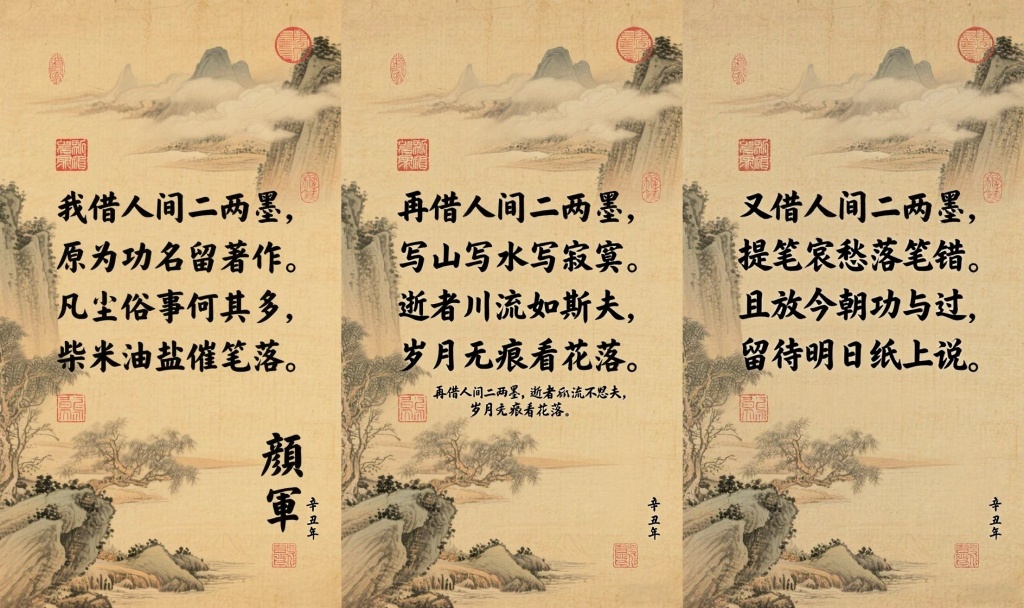 我借人间二两墨，
原为功名留著作。
凡尘俗事何其多，
柴米油盐催笔落。
顏軍
辛丑年
再借人间二两墨，
写山写水写寂寞。
逝者川流如斯夫，
岁月无痕看花落。
再借人间二两墨，逝者川流不思夫，
岁月无痕看花落。
辛丑年
又借人间二两墨，
提笔哀愁落笔错。
且放今朝功与过，
留待明日纸上说。
辛丑年